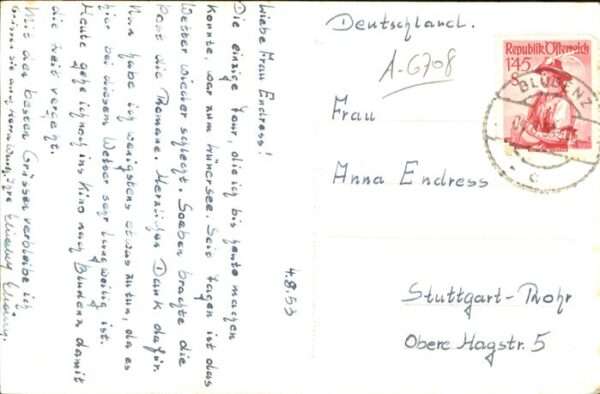 4.8.53
Liebe Frau Endress!
Die einzige Tour, die ich bis heute machen
konnte, war zum Lünersee. Seit Tagen ist das
Wetter wieder schlecht. Soeben brachte die
Post die Romane. Herzlichen Dank dafür.
Nun habe ich wenigstens etwas zu tun, da es
hier bei diesem Wetter sehr langweilig ist.
Heute gehe ich noch ins Kino nach Bludenz damit
die Zeit vergeht.
Mit den besten Grüssen verbleibe ich
Grüssen Sie auch Ihre
Deutschland.
A-6708
Republik Österreich
1'45
S
BLUDENZ
c
Frau
Anna Endress
Stuttgart-Rohr
Obere Hagstr. 5